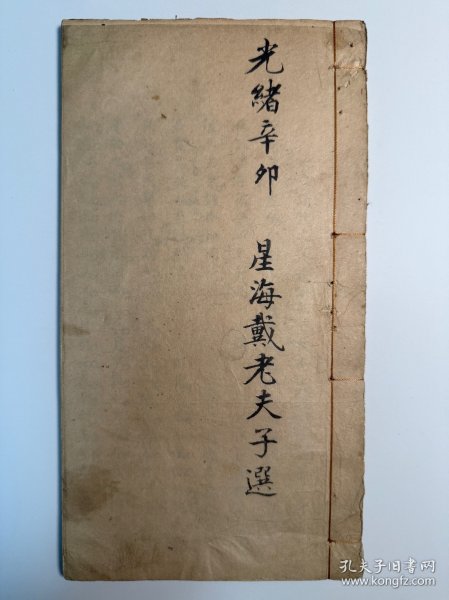 光緒辛卯 星海戴老夫子選
孔夫子旧书网
www.kongfz.com